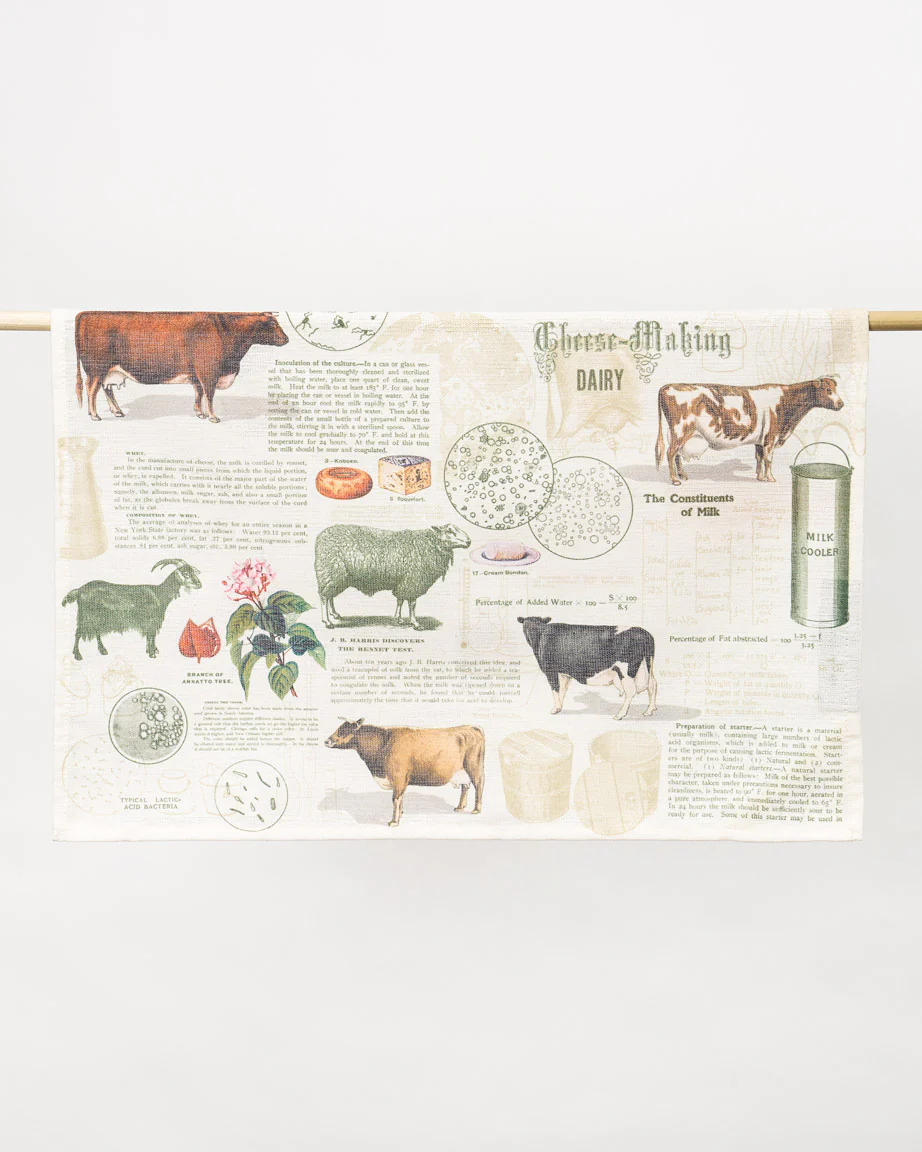 Cheese-Making
DAIRY
Inoculation of the culture.—In a can or glass ves-
sel that has been thoroughly cleaned and sterilized
with boiling water, place one quart of clean, sweet
milk. Heat the milk to at least 185° F. for one hour
by placing the can or vessel in boiling water. At the
end of an hour cool the milk rapidly to 95° F. by
setting the can or vessel in cold water. Then add the
contents of the small bottle of a prepared culture to
the milk, stirring it in with a sterilized spoon. Allow
the milk to cool gradually to 70° F. and hold at this
temperature for 24 hours. At the end of this time
the milk should be sour and coagulated.
WHEY.
In the manufacture of cheese, the milk is curdled by rennet,
and the curd cut into small pieces from which the liquid portion,
or whey, is expelled. It consists of the major part of the water
of the milk, which carries with it nearly all the soluble portions;
namely, the albumen, milk sugar, ash, and also a small portion
of fat, as the globules break away from the surface of the curd
when it is cut
COMPOSITION OF WHEY.
The average of analyses of whey for an entire season in a
New York State factory was as follows: Water 93.12 per cent,
total solids 6.88 per cent, fat .27 per cent, nitrogenous sub-
stances .81 per cent, ash sugar, etc., 5.80 per cent.
5 Roquefort.
17-Cream Bondon.
The Constituents
of Milk
MILK
COOLER
Percentage of Added Water × 100 — S × 100
8.5
Percentage of Fat abstracted = 100 3.25 — f
3.25
J. B. HARRIS DISCOVERS
THE RENNET TEST.
About ten years ago J. B. Harris conceived this idea, and
used a teacupful of milk from the vat, to which he added a tea-
spoonful of rennet and noted the number of seconds required
to coagulate the milk. When the milk was ripened down to a
certain number of seconds, he found that he could foretell
approximately the time that it would take for acid to develop.
BRANCH OF
ANNATTO TREE.
TYPICAL LACTIC-
ACID BACTERIA
Preparation of starter.—A starter is a material
(usually milk), containing large numbers of lactic
acid organisms, which is added to milk or cream
for the purpose of causing lactic fermentation. Start-
ers are of two kinds: (1) Natural and (2) com-
mercial. (1) Natural starters.—A natural starter
may be prepared as follows: Milk of the best possible
character, taken under precautions necessary to insure
cleanliness, is heated to 90° F. for one hour, aerated in
a pure atmosphere, and immediately cooled to 65° F.
In 24 hours the milk should be sufficiently sour to be
ready for use. Some of this starter may be used in